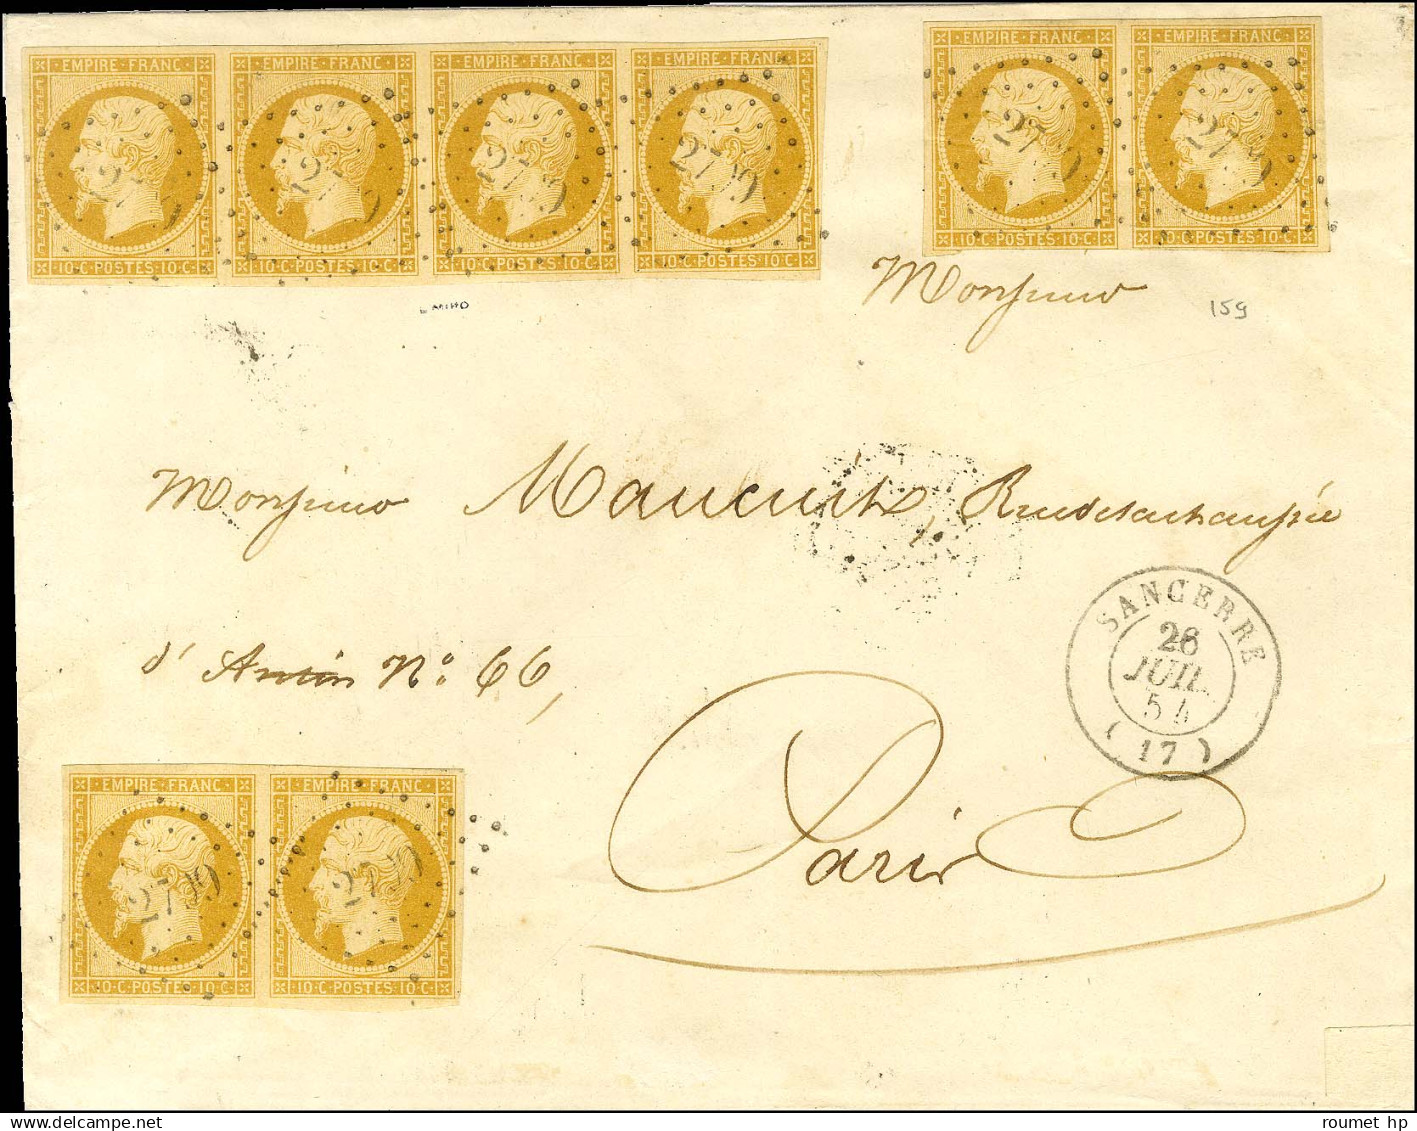 EMPIRE·FRANC· EMPIRE·FRANC· EMPIRE·FRANC· EMPIRE·FRANC·
2799 2799 2799 2799
10·C·POSTES·10·C· 10·C·POSTES·10·C· 10·C·POSTES·10·C· 10·C·POSTES·10·C·
EMPIRE·FRANC· EMPIRE·FRANC·
2799 2799
10·C·POSTES·10·C· 10·C·POSTES·10·C·
Monsieur
159
Monsieur Maucuit, Rue de la chaussée
d' Antin N° 66,
Paris
SANCERRE
26
JUIL.
54
( 17 )
EMPIRE·FRANC· EMPIRE·FRANC·
2799 2799
10·C·POSTES·10·C· 10·C·POSTES·10·C·
roumet hp